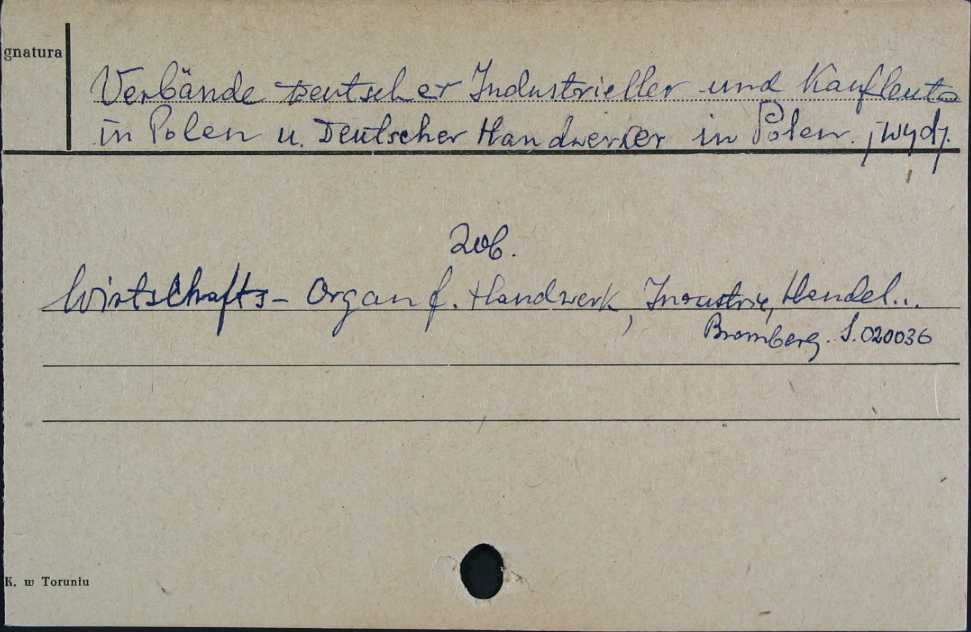 gnatura
Verbände Deutscher Industrieller und Kaufleute
in Polen u. Deutscher Handwerker in Polen. /wyd/.
Zob.
Wirtschafts- Organ f. Handwerk, Industrie, Handel...
Bromberg. S.020036
K. w Toruniu